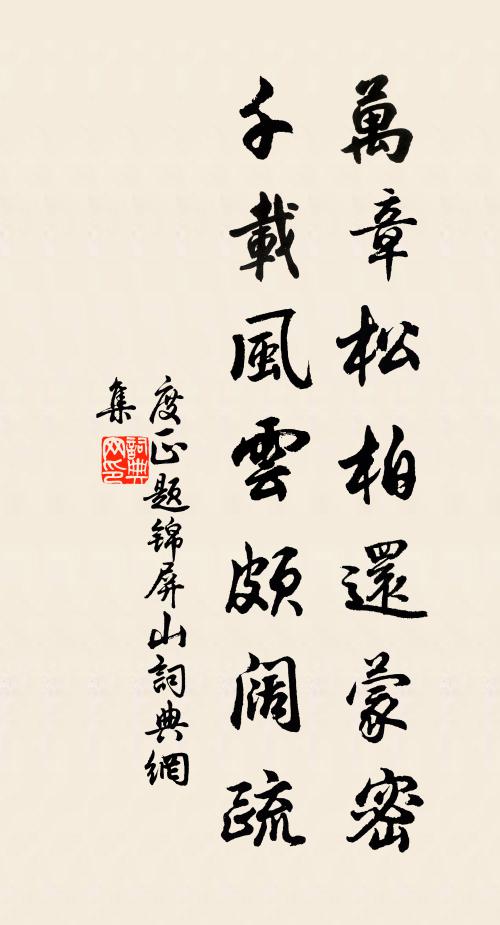 萬章松柏還蒙密
千載風雲頗闊疏
度正题锦屏山詞典網
集
詞典网印